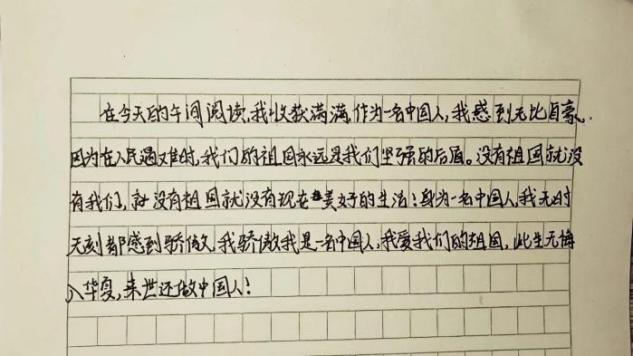 在今天的午间阅读,我收获满满,作为一名中国人,我感到无比自豪,
因为在人民遇难时,我们的祖国永远是我们坚强的后盾。没有祖国就没
有我们,没有祖国就没有现在美好的生活!身为一名中国人,我无时
无刻都感到骄傲,我骄傲我是一名中国人,我爱我们的祖国,此生无悔
入华夏,来世还做中国人!